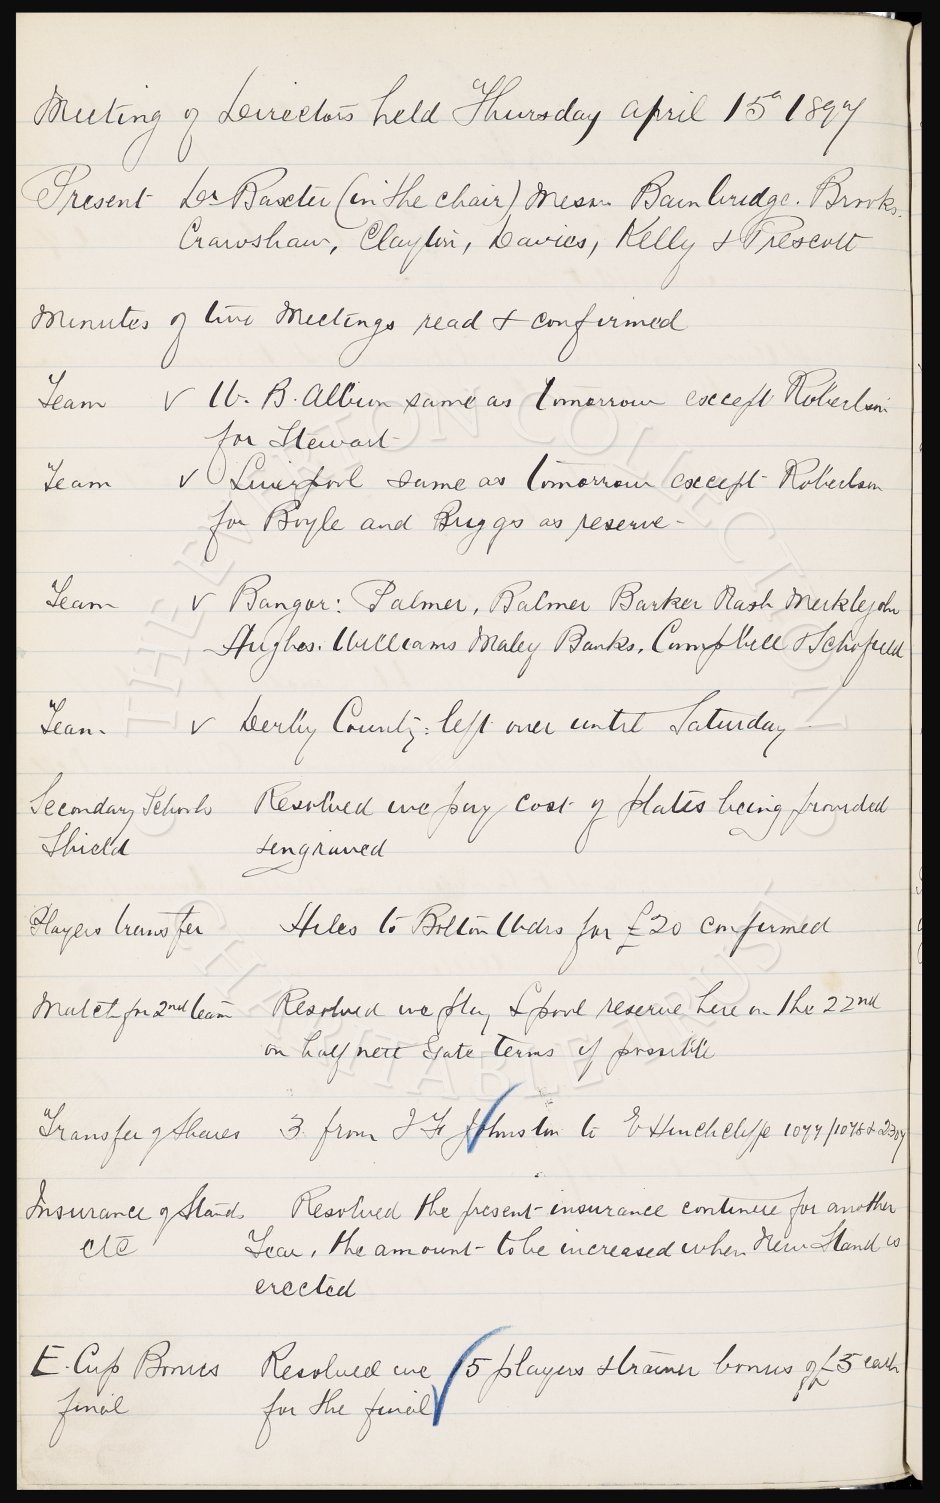 Meeting of Directors held Thursday April 15th 1897
Present Dr Baxter (in the chair) Messrs Bainbridge. Brooks.
Crawshaw, Clayton, Davies, Kelly & Prescott
Minutes of two Meetings read & confirmed
Team v W. B. Albion same as tomorrow except Robertson
for Stewart
Team v Liverpool same as tomorrow except Robertson
for Boyle and Briggs as reserve -
Team v Bangor: Palmer, Balmer Barker Nash Meiklejohn
Hughes. Williams Maley Banks, Campbell & Schofield
Team. v Derby County: left over until Saturday
Secondary Schools Resolved we pay cost of plates being provided
Shield & engraved
Players transfer Hiles to Bolton Wdrs for £20 confirmed
Match for 2nd team Resolved we play L'pool reserve here on the 22nd
on half nett Gate terms if possible
Transfer of Shares 3 from J F Johnston to E Hinchcliffe 1077/1078 & 2307
Insurance of Stands Resolved the present insurance continue for another
etc Year, the amount to be increased when New Stand is
erected
E. Cup Bonus Resolved we 15 players & trainer bonus of £5 each
final for the final
THE EVERTON COLLECTION
CHARITABLE TRUST